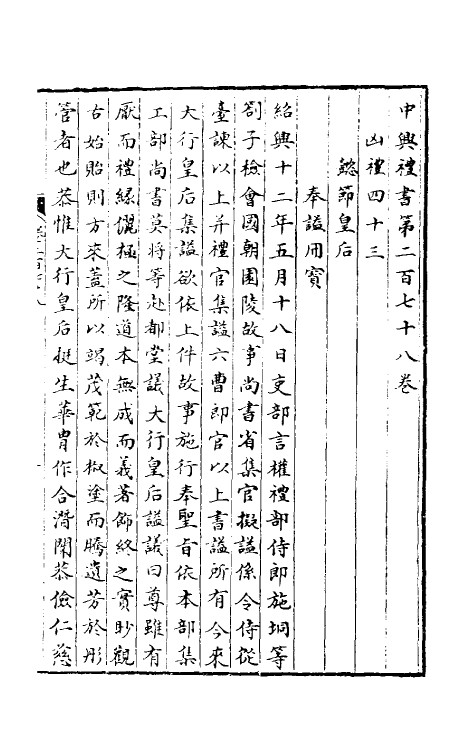 中興禮書第二百七十八卷
凶禮四十三
懿節皇后
奉謚用寶
紹興十二年五月十八日吏部言權禮部侍郎施坰等
劄子檢會國朝園陵故事尚書省集官擬謚係令侍從
臺諫以上并禮官集謚六曹郎官以上書謚所有今來
大行皇后集謚欲依上件故事施行奉聖旨依本部集
工部尚書莫將等赴都堂議大行皇后謚議曰尊雖有
厭而禮緣儷極之隆道本無成而義著飾終之實眇觀
古始貽則方來蓋所以竭茂範於椒塗而騰遺芳於彤
管者也恭惟大行皇后挺生華胄作合潛閫恭儉仁慈